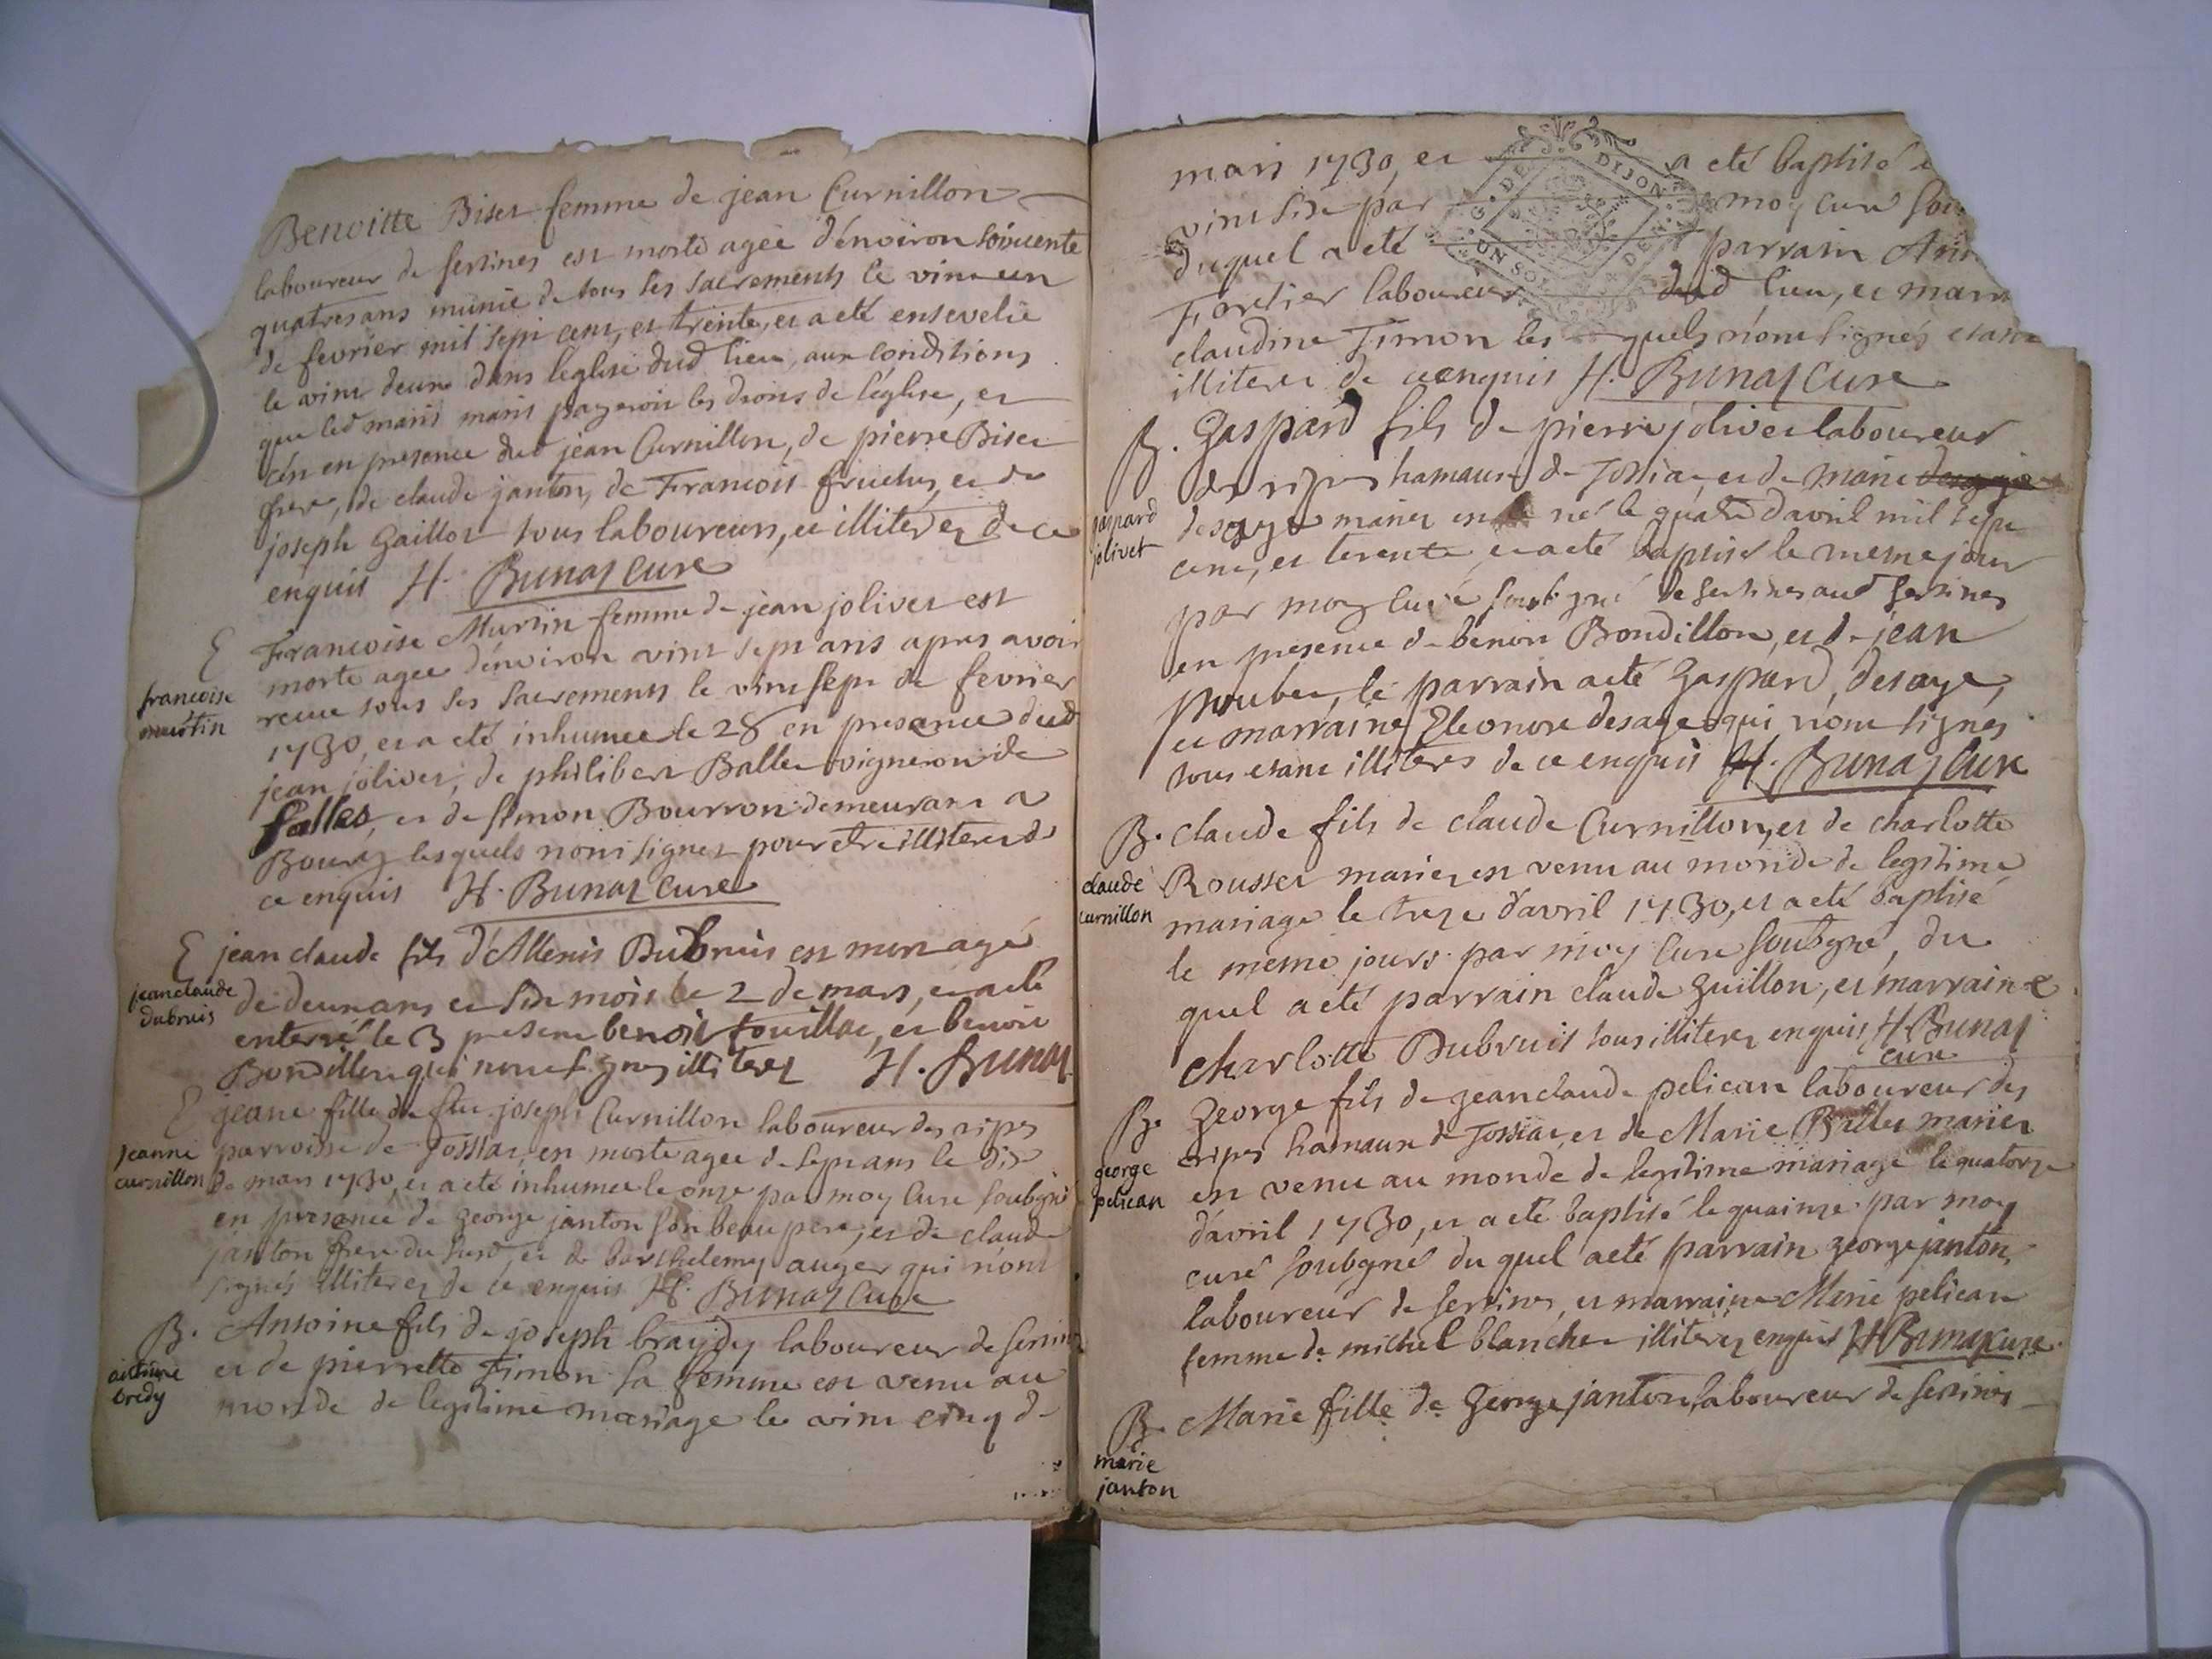 Benoitte Biset femme de jean Curnillon
laboureur de sertines est morte agée d'énviron soixcente
quatres ans munie de tous les sacrements le vint un
de fevrier mil sept cent, et trente, et a eté ensevelie
le vint deux dans l'eglise dud lieu aux conditions
que led maris maris payeroit les droits de l'église, et
cén en presence dud jean Curnillon, de pierre Biset
frere, de claude janton, de Francois fruchet, et de
joseph Gaillot tous laboureurs, et illiterez de ce
enquis H. Bunaz Cure
E
francoise
murtin
Francoise Murtin femme de jean jolivet est
morte agee d'énviron vint sept ans apres avoir
recue tous les sacrements le vint sept de fevrier
1730, et a eté inhumee le 28 en presance dud
jean jolivet, de philibert Ballet vigneron de
salles, et de simon Bourron demeurant a
Bourg lesquels n'ont signez pour etre illiterez de
ce enquis H. Bunaz cure
E
jean claude
dubruis
jean claude fils d'Allexis Dubruis est mort agé
de deux ans et six mois le 2 de mars, et a eté
enterré le 3 present benoit touillat, et benoit
Bondillon qui n'ont signez illiterez H. Bunaz
E
jeanne
curnillon
jeane fille de feu joseph Curnillon laboureur des ripes
parroisse de Tossiat, est morte agee de sept ans le dix
de mars 1730, et a eté inhumee le onze par moy Cure soubgné
en presence de george janton son beau pere, et de claude
janton frere du susd, et de barthelemy auger qui n'ont
signés illiterez de ce enquis H. Bunaz Cure
B.
antoine
bredy
Antoine fils de joseph braydy laboureur de sertines
et de pierrette Timon sa femme est venu au
monde de legitime mariage le vint cinq de
mars 1730, et a eté baptisé
G. DE DIJON
UN SOL
vint six par moy curé
duquel a eté parrain
Fortier laboureur dud lieu, et
claudine Timon lesquels n'ont signés etant
illiterez de ce enquis H. Bunaz Cure
B.
gaspard
jolivet
Gaspard fils de pierre jolivet laboureur
des ripes hamaux de Tossiat, et de marie
desaye mariez est né le quatre d'avril mil sept
cent, et terente, et a eté baptisé le meme jour
par moy Curé soubgné de sertines aud sertines
en presence de benoit Bondillon, et de jean
poubet, le parrain a eté Gaspard desaye,
et marraine Eleonore desaye qui n'ont signés
tous etant illiteres de ce enquis H. Bunaz Cure
B.
claude
curnillon
claude fils de claude Curnillon, et de charlotte
Rousset mariez est venu au monde de legitime
mariage le treze d'avril 1730, et a eté baptisé
le meme jours par moy Cure soubgné, du
quel a eté parrain claude Guillon, et marraine
charlotte Dubruis tous illiterez enquis H. Bunaz
cure
B.
george
pelican
George fils de jeanclaude pelican laboureur des
ripes hamaux de Tossiat, et de Marie Ballet mariez
est venu au monde de legitime mariage le quatorze
d'avril 1730, et a eté baptisé le quainze par moy
curé soubgné du quel a eté parrain george janton,
laboureur de sertines, et marraine Marie pelican
femme de michel blanchet illiterez enquis H Bunaz cure
B.
marie
janton
Marie fille de George janton laboureur de sertines